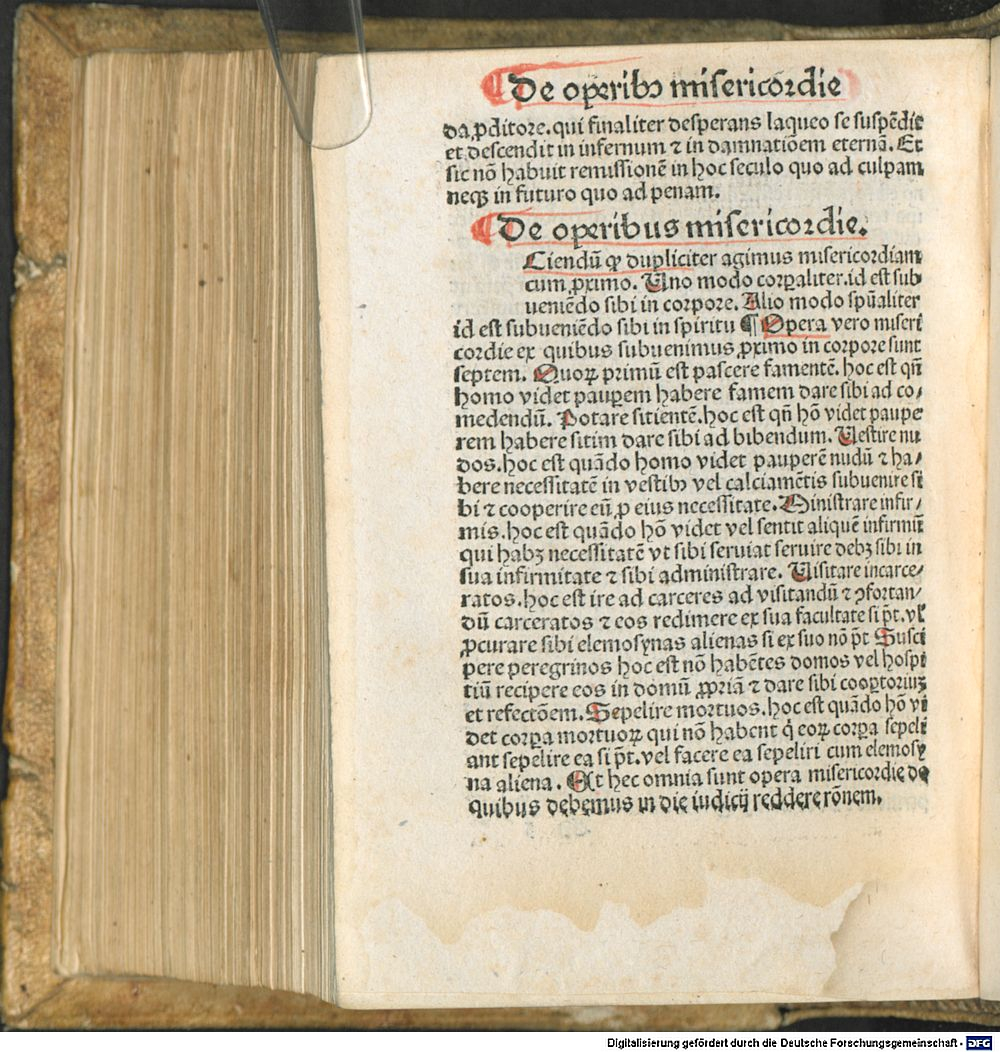 De operibꝰ misericordie
da ꝓditore. qui finaliter desperans laqueo se suspēdit
et descendit in infernum ⁊ in damnatiōem eternā. Et
sic nō habuit remissionē in hoc seculo quo ad culpam
neqꝫ in futuro quo ad penam.
De operibus misericordie.
Ciendū ꝙ dupliciter agimus misericordiam
cum ꝓximo. Uno modo corꝑaliter. id est sub
ueniēdo sibi in corpore. Alio modo spūaliter
id est subueniēdo sibi in spiritu ¶ Opera vero miseri
cordie ex quibus subuenimus ꝓximo in corpore sunt
septem. Quoꝝ primū est pascere famentē. hoc est qn̄
homo videt pauꝑem habere famem dare sibi ad co⸗
medendū. Potare sitientē. hoc est qn̄ hō videt paupe
rem habere sitim dare sibi ad bibendum. Uestire nu
dos. hoc est quādo homo videt pauperē nudū ⁊ ha⸗
bere necessitatē in vestibꝰ vel calciamētis subuenire si
bi ⁊ cooperire eū ꝓ eius necessitate. Ministrare infir⸗
mis. hoc est quādo hō videt vel sentit aliquē infirmū
qui habꝫ necessitatē vt sibi seruiat seruire debꝫ sibi in
sua infirmitate ⁊ sibi administrare. Uisitare incarce⸗
ratos. hoc est ire ad carceres ad visitandū ⁊ ꝯfortan⸗
dū carceratos ⁊ eos redimere ex sua facultate si pt̄. vl̓
ꝓcurare sibi elemosynas alienas si ex suo nō pt̄ Susci
pere peregrinos hoc est nō habētes domos vel hospi
tiū recipere eos in domū ꝓpriā ⁊ dare sibi cooꝑtoriuꝫ
et refectōem. Sepelire mortuos. hoc est quādo hō vi
det corꝑa mortuoꝝ qui nō habent q̇ eoꝝ corꝑa sepeli
ant sepelire ea si pt̄. vel facere ea sepeliri cum elemosy
na aliena. Et hec omnia sunt opera misericordie de
quibus debemus in die iudicij reddere rōnem.
Digitalisierung gefördert durch die Deutsche Forschungsgemeinschaft - DFG